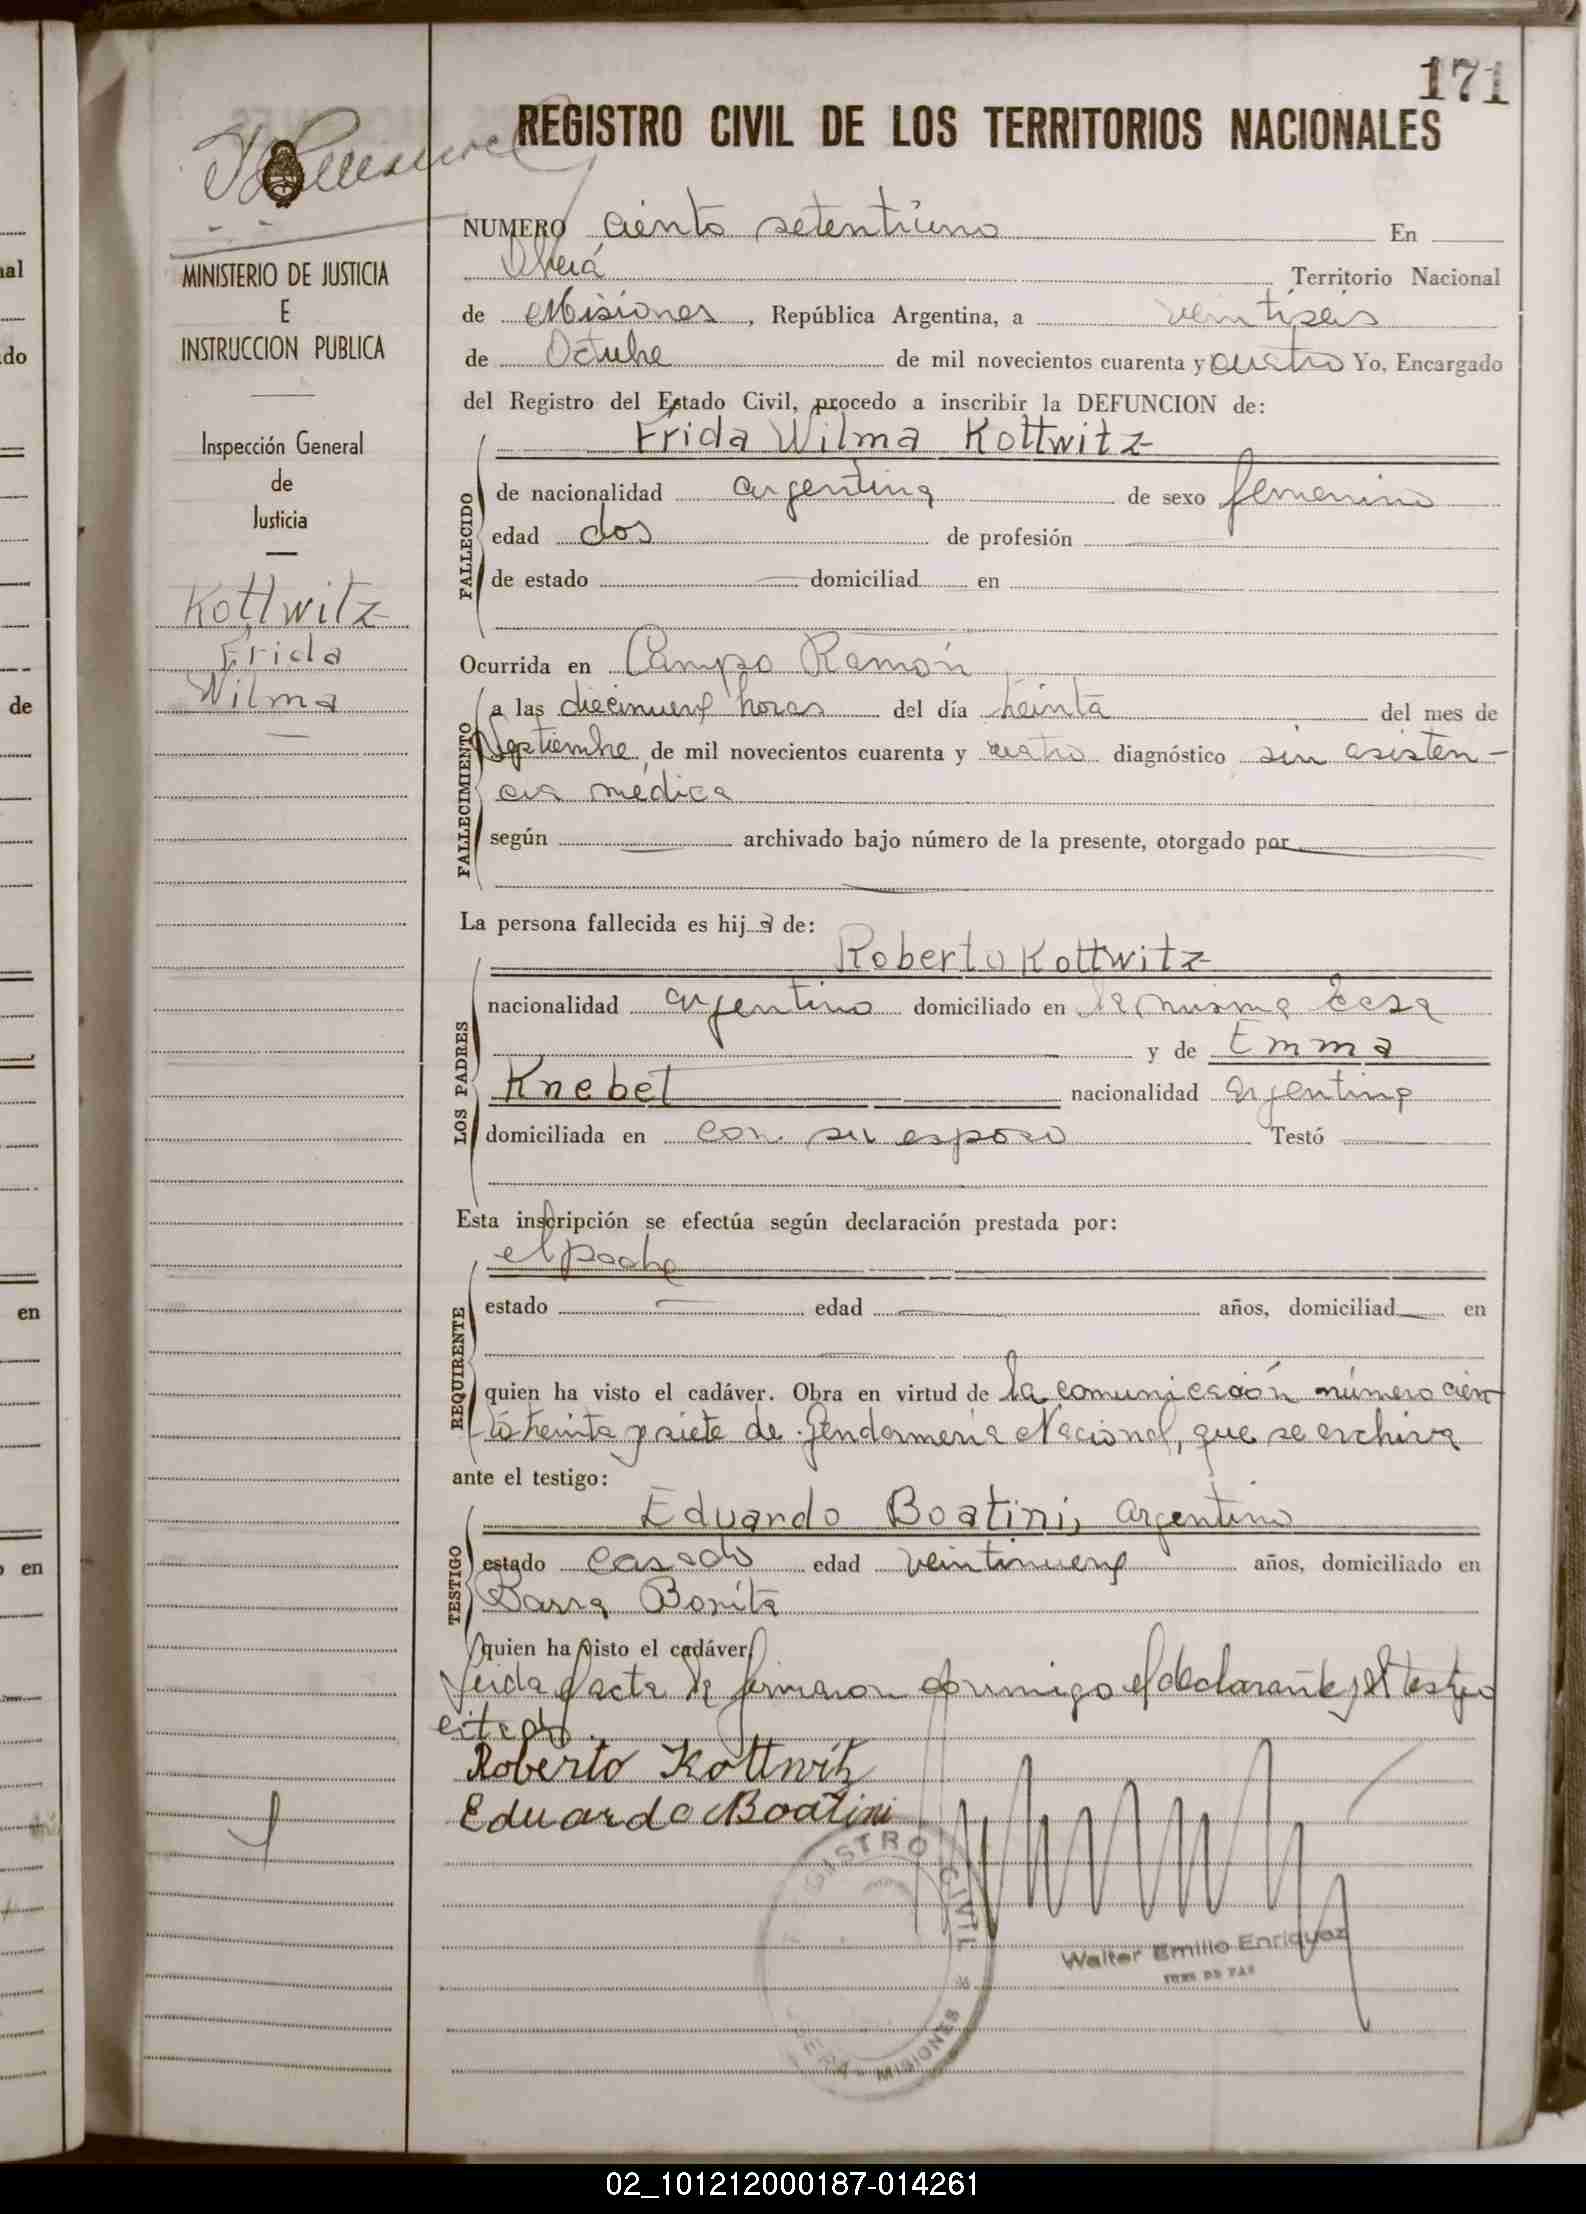 171
REGISTRO CIVIL DE LOS TERRITORIOS NACIONALES
MINISTERIO DE JUSTICIA
E
INSTRUCCION PUBLICA
Inspección General
de
Justicia
Kottwitz
Frida
Wilma
NUMERO ciento setentiuno En
Oberá Territorio Nacional
de Misiones, República Argentina, a veintiseis
de Octubre de mil novecientos cuarenta y cuatro Yo, Encargado
del Registro del Estado Civil, procedo a inscribir la DEFUNCION de:
Frida Wilma Kottwitz
FALLECIDO
de nacionalidad argentina de sexo femenino
edad dos de profesión
de estado domiciliad en
Ocurrida en Campo Ramón
FALLECIMIENTO
a las diecinueve horas del día treinta del mes de
Septiembre de mil novecientos cuarenta y cuatro diagnóstico sin asisten-
cia médica
según archivado bajo número de la presente, otorgado por
La persona fallecida es hija de:
LOS PADRES
Roberto Kottwitz
nacionalidad argentino domiciliado en la misma casa
y de Emma
Knebel nacionalidad argentina
domiciliada en con su esposo Testó
Esta inscripción se efectúa según declaración prestada por:
REQUIRENTE
el padre
estado edad años, domiciliad en
quien ha visto el cadáver. Obra en virtud de la comunicación número cien
to treinta y siete de Gendarmería Nacional, que se archiva
ante el testigo:
TESTIGO
Eduardo Boatini, argentino
estado casado edad veintinueve años, domiciliado en
Barra Bonita
quien ha visto el cadáver
Leida el acta la firmaron conmigo el declarante y el testigo
citado.
Roberto Kottwitz
Eduardo Boatini
REGISTRO CIVIL
OBERA - MISIONES
Walter Emilio Enriquez
JUEZ DE PAZ
al
do
de
en
en
02_101212000187-014261